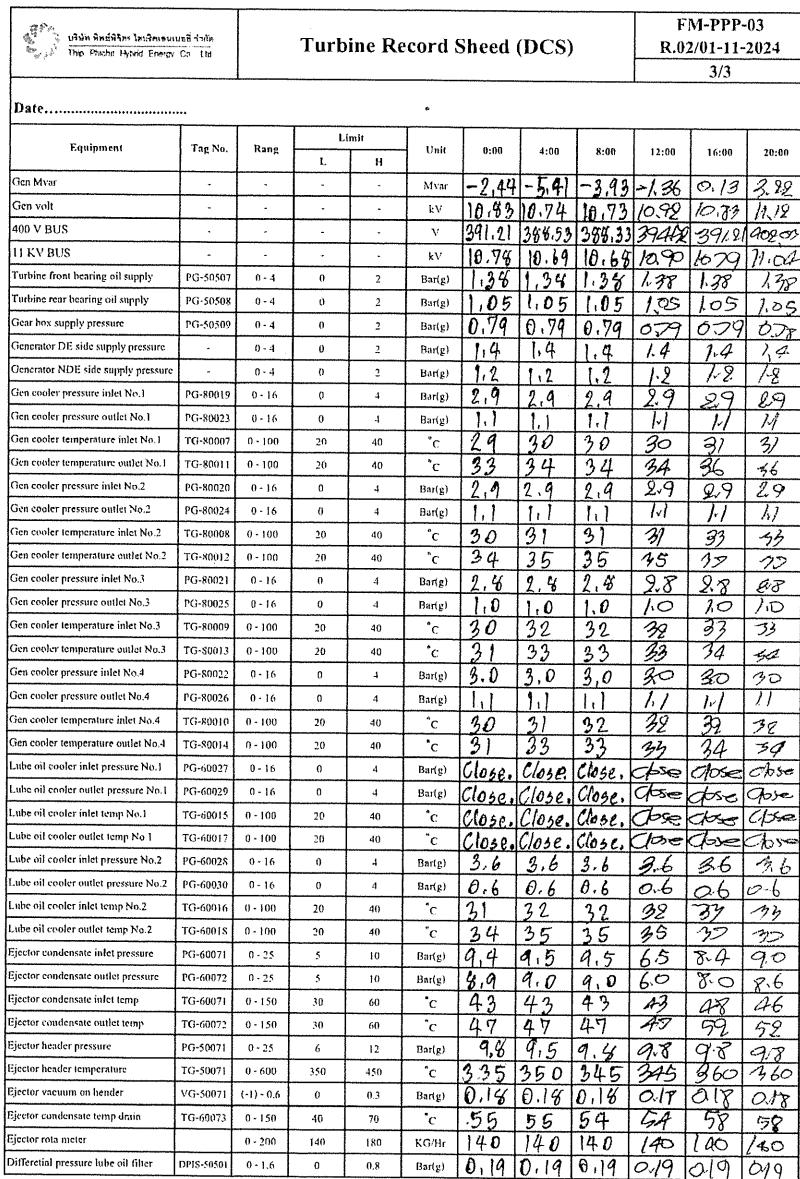 บริษัท ทิพย์พิจิตร ไฮบริดเอนเนอยี่ จำกัด
Thip Phichit Hybrid Energy Co. Ltd
Turbine Record Sheed (DCS)
FM-PPP-03
R.02/01-11-2024
3/3
Date..................................
Equipment Tag No. Rang Limit L H Unit 0:00 4:00 8:00 12:00 16:00 20:00
Gen Mvar - - - - Mvar -2,44 -5,41 -3,93 -1.36 0.13 3.22
Gen volt - - - - kV 10,83 10,74 10,73 10.92 10.83 11.12
400 V BUS - - - - V 391.21 388.53 388.33 391.21
11 KV BUS - - - - kV 10.78 10.69 10.68 10.90 10.79 11.04
Turbine front bearing oil supply PG-50507 0 - 4 0 2 Bar(g) 1,38 1,38 1.38 1.38 1.38 1.38
Turbine rear bearing oil supply PG-50508 0 - 4 0 2 Bar(g) 1,05 1,05 1,05 1.05 1.05 1.05
Gear box supply pressure PG-50509 0 - 4 0 2 Bar(g) 0.79 0,79 0,79 0.79 0.79 0.78
Generator DE side supply pressure - 0 - 4 0 2 Bar(g) 1,4 1,4 1,4 1.4 1.4 1.4
Generator NDE side supply pressure - 0 - 4 0 2 Bar(g) 1,2 1,2 1,2 1.2 1.2 1.2
Gen cooler pressure inlet No.1 PG-80019 0 - 16 0 4 Bar(g) 2,9 2,9 2,9 2.9 2.9 2.9
Gen cooler pressure outlet No.1 PG-80023 0 - 16 0 4 Bar(g) 1,1 1,1 1,1 1.1 1.1 1.1
Gen cooler temperature inlet No.1 TG-80007 0 - 100 20 40 °C 29 30 30 30 31 31
Gen cooler temperature outlet No.1 TG-80011 0 - 100 20 40 °C 33 34 34 34 36 36
Gen cooler pressure inlet No.2 PG-80020 0 - 16 0 4 Bar(g) 2,9 2.9 2,9 2.9 2.9 2.9
Gen cooler pressure outlet No.2 PG-80024 0 - 16 0 4 Bar(g) 1,1 1,1 1,1 1.1 1.1 1.1
Gen cooler temperature inlet No.2 TG-80008 0 - 100 20 40 °C 30 31 31 31 33 33
Gen cooler temperature outlet No.2 TG-80012 0 - 100 20 40 °C 34 35 35 35 37 37
Gen cooler pressure inlet No.3 PG-80021 0 - 16 0 4 Bar(g) 2,8 2,8 2,8 2.8 2.8 2.8
Gen cooler pressure outlet No.3 PG-80025 0 - 16 0 4 Bar(g) 1,0 1,0 1,0 1.0 1.0 1.0
Gen cooler temperature inlet No.3 TG-80009 0 - 100 20 40 °C 30 32 32 32 33 33
Gen cooler temperature outlet No.3 TG-80013 0 - 100 20 40 °C 31 33 33 33 34 34
Gen cooler pressure inlet No.4 PG-80022 0 - 16 0 4 Bar(g) 3.0 3,0 3,0 3.0 3.0 3.0
Gen cooler pressure outlet No.4 PG-80026 0 - 16 0 4 Bar(g) 1,1 1,1 1,1 1.1 1.1 1.1
Gen cooler temperature inlet No.4 TG-80010 0 - 100 20 40 °C 30 31 32 32 32 32
Gen cooler temperature outlet No.4 TG-80014 0 - 100 20 40 °C 31 33 33 33 34 34
Lube oil cooler inlet pressure No.1 PG-60027 0 - 16 0 4 Bar(g) Close. Close. Close. Close Close Close
Lube oil cooler outlet pressure No.1 PG-60029 0 - 16 0 4 Bar(g) Close. Close. Close. Close Close Close
Lube oil cooler inlet temp No.1 TG-60015 0 - 100 20 40 °C Close. Close. Close. Close Close Close
Lube oil cooler outlet temp No 1 TG-60017 0 - 100 20 40 °C Close. Close. Close. Close Close Close
Lube oil cooler inlet pressure No.2 PG-60028 0 - 16 0 4 Bar(g) 3,6 3,6 3.6 3.6 3.6 3.6
Lube oil cooler outlet pressure No.2 PG-60030 0 - 16 0 4 Bar(g) 0.6 0.6 0.6 0.6 0.6 0.6
Lube oil cooler inlet temp No.2 TG-60016 0 - 100 20 40 °C 31 32 32 32 33 33
Lube oil cooler outlet temp No.2 TG-60018 0 - 100 20 40 °C 34 35 35 35 37 37
Ejector condensate inlet pressure PG-60071 0 - 25 5 10 Bar(g) 9,4 9,5 9,5 6.5 8.4 9.0
Ejector condensate outlet pressure PG-60072 0 - 25 5 10 Bar(g) 8,9 9.0 9,0 6.0 8.0 8.6
Ejector condensate inlet temp TG-60071 0 - 150 30 60 °C 43 43 43 43 48 46
Ejector condensate outlet temp TG-60072 0 - 150 30 60 °C 47 47 47 47 52 52
Ejector header pressure PG-50071 0 - 25 6 12 Bar(g) 9,8 9,5 9.8 9.8 9.8 9.8
Ejector header temperature TG-50071 0 - 600 350 450 °C 335 350 345 345 360 360
Ejector vacuum on hender VG-50071 (-1) - 0.6 0 0.3 Bar(g) 0.18 0.18 0.18 0.18 0.18 0.18
Ejector condensate temp drain TG-60073 0 - 150 40 70 °C 55 55 54 54 58 58
Ejector rota meter 0 - 200 140 180 KG/Hr 140 140 140 140 140 140
Differetial pressure lube oil filter DPIS-50501 0 - 1.6 0 0.8 Bar(g) 0,19 0,19 0,19 0.19 0.19 0.19